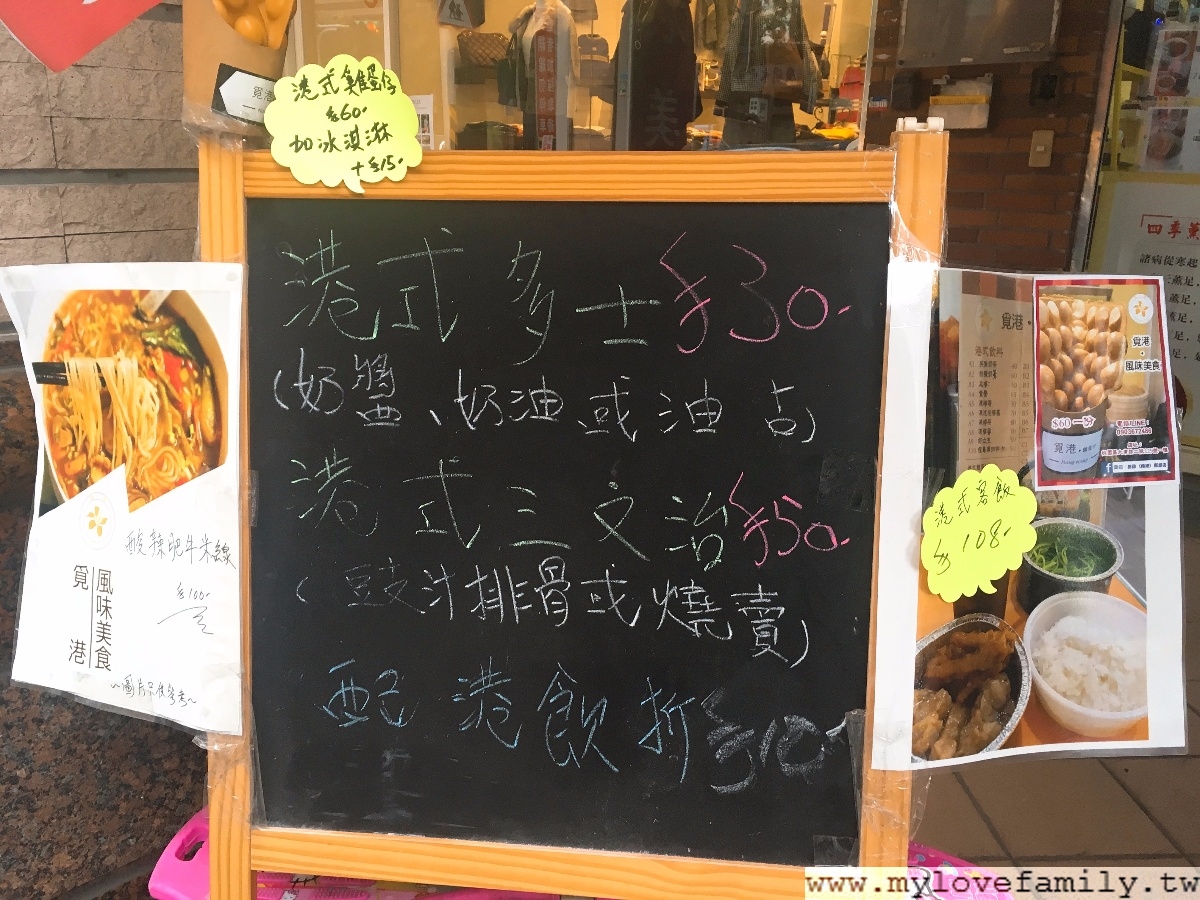 港式雞蛋仔
$60-
加冰淇淋
+$15-
港式多士$30-
(奶醬、奶油或油占)
港式三文治$50-
(豉汁排骨或燒賣)
配港飲折$10-
酸辣肥牛米線
$100-
覓港
風味美食
~圖片只供參考~
覓港
覓港
港式飲料
覓港
風味美食
$60一份
覓港
港式客飯
$108-
四季薰
諸病從寒起
www.mylovefamily.tw